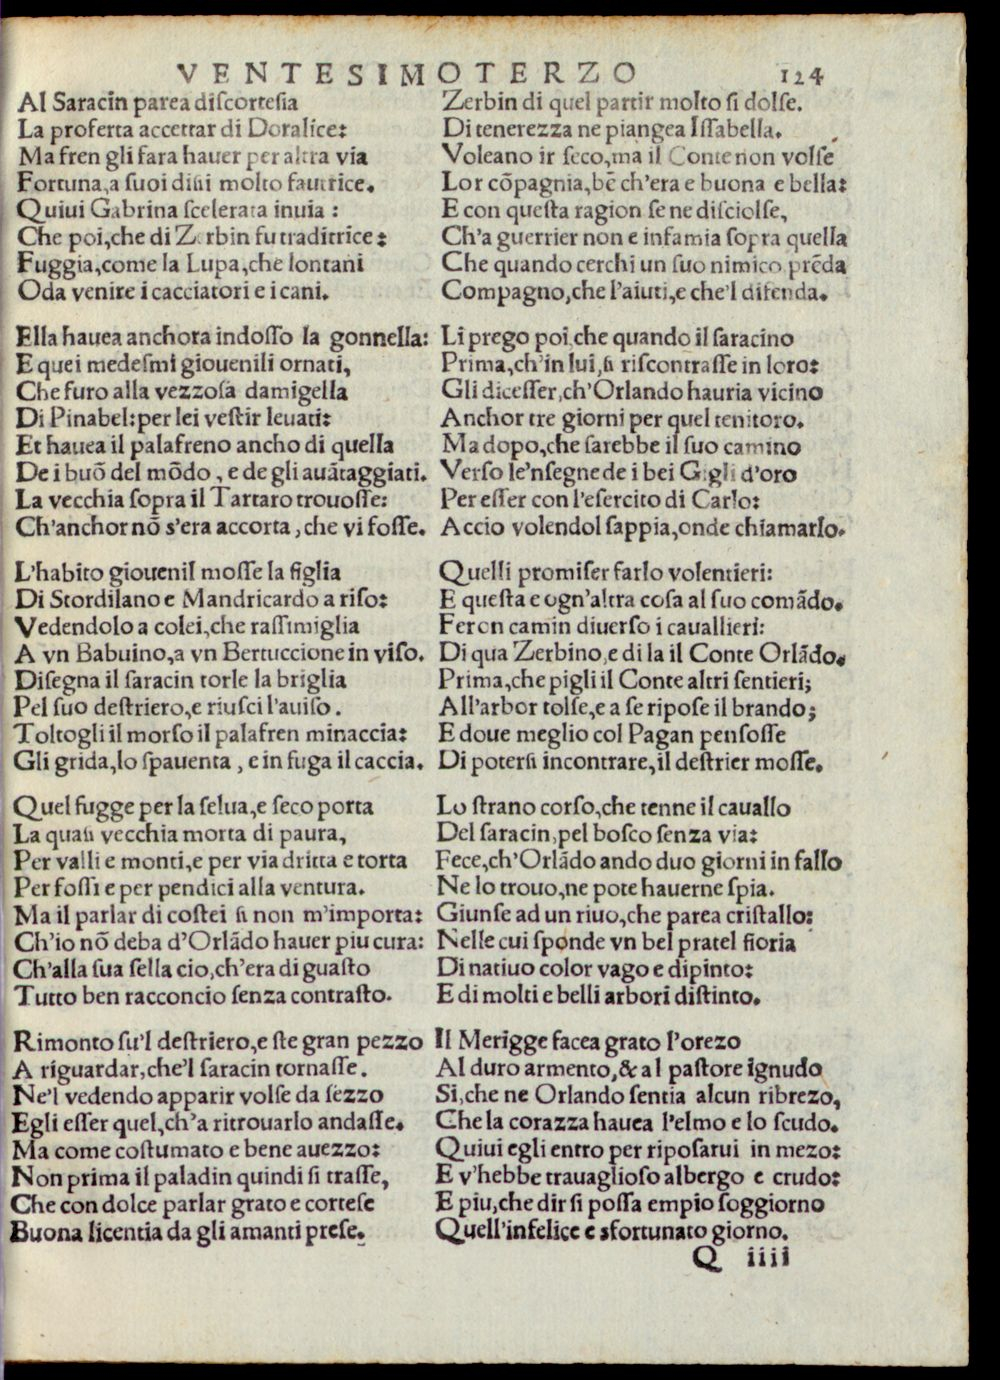 VENTESIMOTERZO 124
Al Saracin parea discortesia
La proferta accettar di Doralice:
Ma fren gli fara hauer per altra via
Fortuna, a suoi disii molto fautrice.
Quiui Gabrina scelerata inuia:
Che poi, che di Zerbin fu traditrice:
Fuggia, come la Lupa, che lontani
Oda venire i cacciatori e i cani.
Ella hauea anchora indosso la gonnella:
E quei medesmi giouenili ornati,
Che furo alla vezzosa damigella
Di Pinabel: per lei vestir leuati:
Et hauea il palafreno ancho di quella
De i buõ del mõdo, e de gli auãtaggiati.
La vecchia sopra il Tartaro trouosse:
Ch'anchor nõ s'era accorta, che vi fosse.
L'habito giouenil mosse la figlia
Di Stordilano e Mandricardo a riso:
Vedendolo a colei, che rassimiglia
A vn Babuino, a vn Bertuccione in viso.
Disegna il saracin torle la briglia
Pel suo destriero, e riusci l'auiso.
Toltogli il morso il palafren minaccia:
Gli grida, lo spauenta, e in fuga il caccia.
Quel fugge per la selua, e seco porta
La quasi vecchia morta di paura,
Per valli e monti, e per via dritta e torta
Per fossi e per pendici alla ventura.
Ma il parlar di costei si non m'importa:
Ch'io nõ deba d'Orlãdo hauer piu cura:
Ch'alla sua sella cio, ch'era di guasto
Tutto ben racconcio senza contrasto.
Rimonto su'l destriero, e ste gran pezzo
A riguardar, che'l saracin tornasse.
Ne'l vedendo apparir volse da sezzo
Egli esser quel, ch'a ritrouarlo andasse.
Ma come costumato e bene auezzo:
Non prima il paladin quindi si trasse,
Che con dolce parlar grato e cortese
Buona licentia da gli amanti prese.
Zerbin di quel partir molto si dolse.
Di tenerezza ne piangea Issabella.
Voleano ir seco, ma il Conte non volse
Lor cõpagnia, bẽ ch'era e buona e bella:
E con questa ragion se ne disciolse,
Ch'a guerrier non e infamia sopra quella
Che quando cerchi un suo nimico prẽda
Compagno, che l'aiuti, e che'l difenda.
Li prego poi che quando il saracino
Prima, ch'in lui, si riscontrasse in loro:
Gli dicesser, ch'Orlando hauria vicino
Anchor tre giorni per quel tenitoro.
Ma dopo, che sarebbe il suo camino
Verso le'nsegne de i bei Gigli d'oro
Per esser con l'esercito di Carlo:
Accio volendol sappia, onde chiamarlo.
Quelli promiser farlo volentieri:
E questa e ogn'altra cosa al suo comãdo.
Feron camin diuerso i cauallieri:
Di qua Zerbino, e di la il Conte Orlãdo.
Prima, che pigli il Conte altri sentieri;
All'arbor tolse, e a se ripose il brando;
E doue meglio col Pagan pensosse
Di potersi incontrare, il destrier mosse.
Lo strano corso, che tenne il cauallo
Del saracin, pel bosco senza via:
Fece, ch'Orlãdo ando duo giorni in fallo
Ne lo trouo, ne pote hauerne spia.
Giunse ad un riuo, che parea cristallo:
Nelle cui sponde vn bel pratel fioria
Di natiuo color vago e dipinto:
E di molti e belli arbori distinto.
Il Merigge facea grato l'orezo
Al duro armento, & al pastore ignudo
Si, che ne Orlando sentia alcun ribrezo,
Che la corazza hauea l'elmo e lo scudo.
Quiui egli entro per riposarui in mezo:
E v'hebbe trauaglioso albergo e crudo:
E piu, che dir si possa empio soggiorno
Quell'infelice e sfortunato giorno.
Q iiii